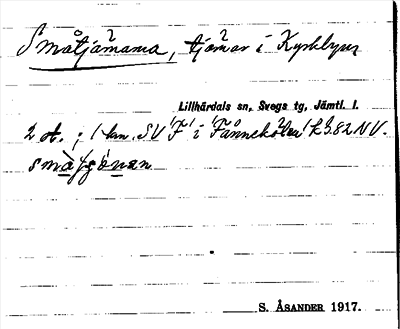 Småtjärnarna, tjärnar i Kyrkbyn
Lillhärdals sn, Svegs tg, Jämtl. l.
2 st.; 1 km. SV "F" i "Fånnekölen" k.b. 82 NV.
S. ÅSANDER 1917.